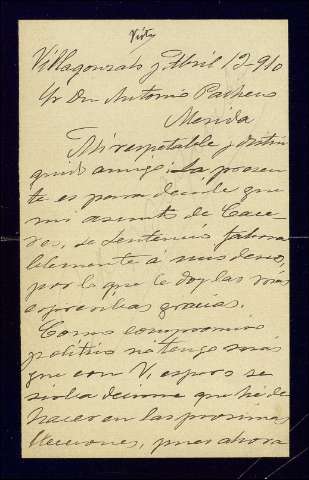 Visto
Villagonzalo y Abril 12-910
Sr Dn Antonio Pacheco
Merida
Mi respetable y distin
guido amigo: La presen
te es para decirle que
mi asunto de Cace-
res, se sentenció favora
blemente á mis deseos,
por lo que le doy las mas
expresivas gracias.
Como compromiso
politico no tengo más
que con V. espero se
sirba decirme que hé de
hacer en las proximas
elecciones, pues ahora